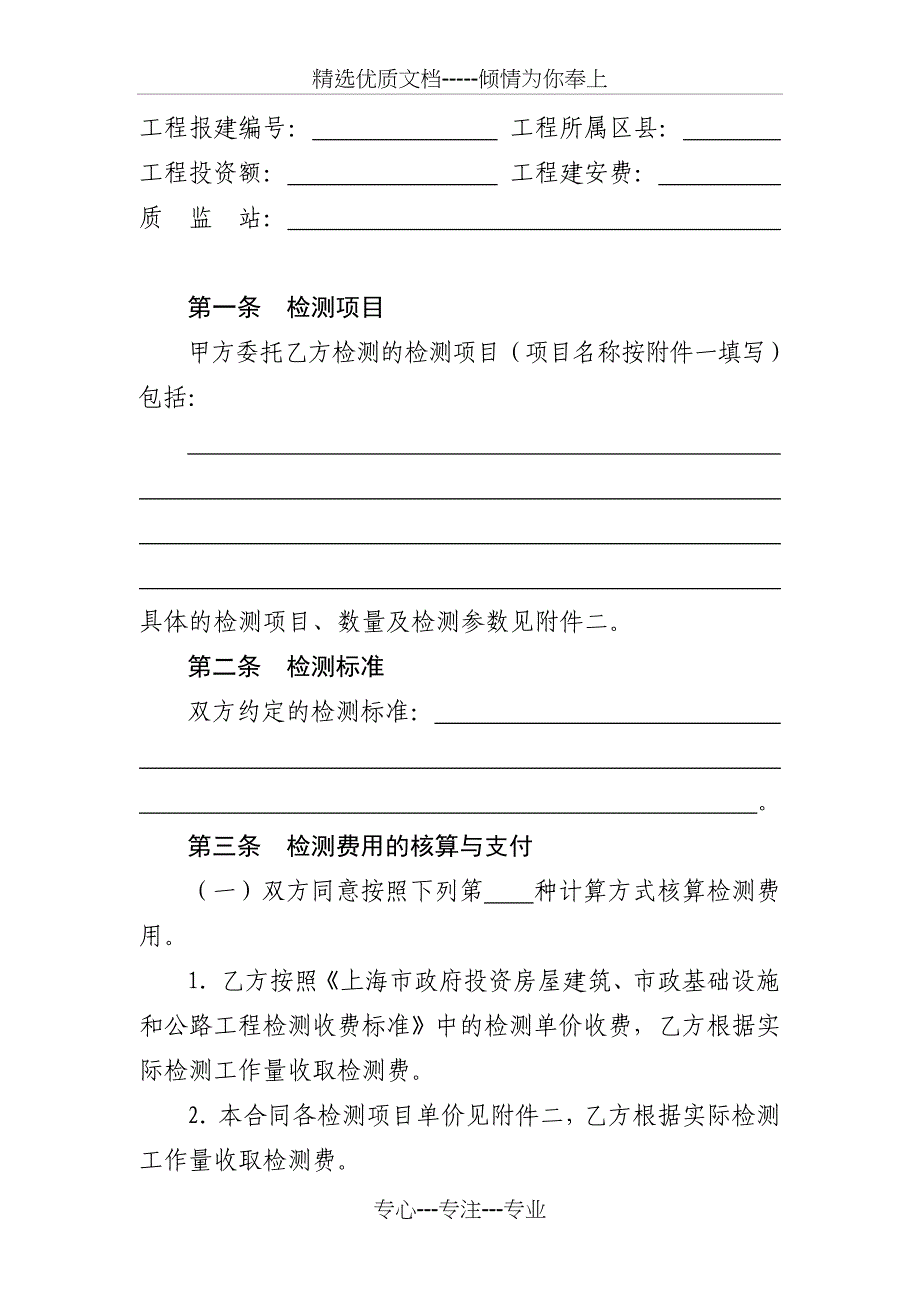 精选优质文档-----倾情为你奉上
工程报建编号：_______________ 工程所属区县：________
工程投资额：_________________ 工程建安费：__________
质　监　站：________________________________________
第一条　检测项目
甲方委托乙方检测的检测项目（项目名称按附件一填写）
包括：
________________________________________________
____________________________________________________
____________________________________________________
____________________________________________________
具体的检测项目、数量及检测参数见附件二。
第二条　检测标准
双方约定的检测标准：____________________________
____________________________________________________
__________________________________________________。
第三条　检测费用的核算与支付
（一）双方同意按照下列第____种计算方式核算检测费
用。
1. 乙方按照《上海市政府投资房屋建筑、市政基础设施
和公路工程检测收费标准》中的检测单价收费，乙方根据实
际检测工作量收取检测费。
2. 本合同各检测项目单价见附件二，乙方根据实际检测
工作量收取检测费。
专心---专注---专业